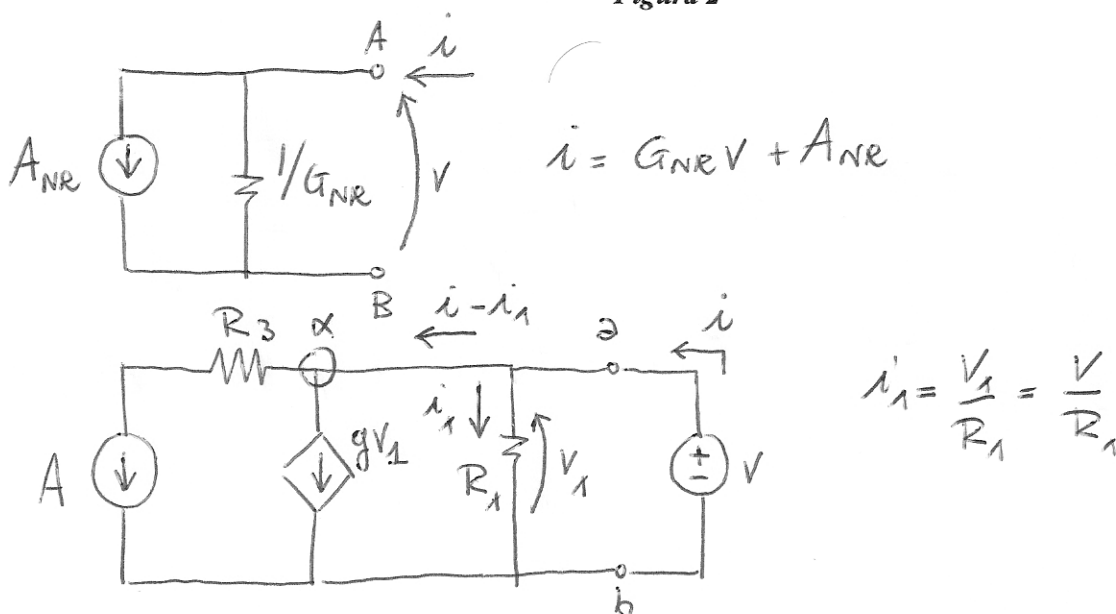 Figura 2
A
i
A_NR
1/G_NR
v
i = G_NR v + A_NR
B
R3
α
i - i1
a
i
A
gv1
i1
R1
v1
+
-
v
i1 = v1/R1 = v/R1
b